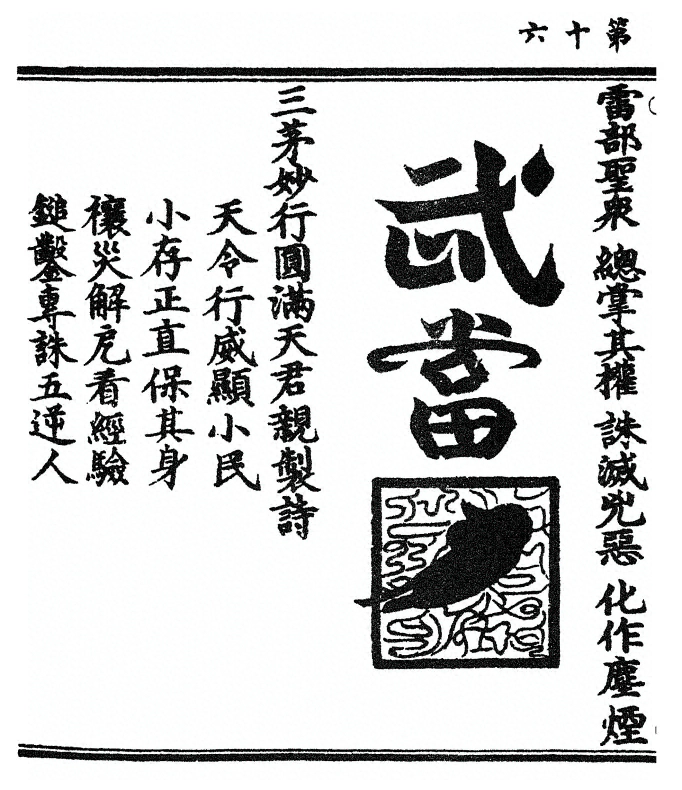 第十六
雷部聖衆 總掌其權 誅滅兇惡 化作塵煙
武當
三茅妙行圓滿天君親製詩
天令行威顯小民
小存正直保其身
禳災解厄看經驗
鎚鑿專誅五逆人